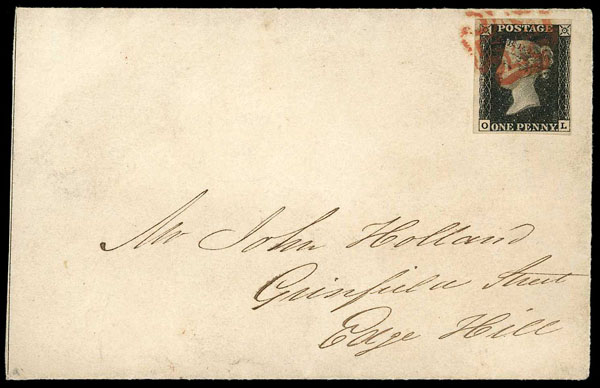 POSTAGE
O ONE PENNY L
Mr John Holland
Grinfield Street
Edge Hill